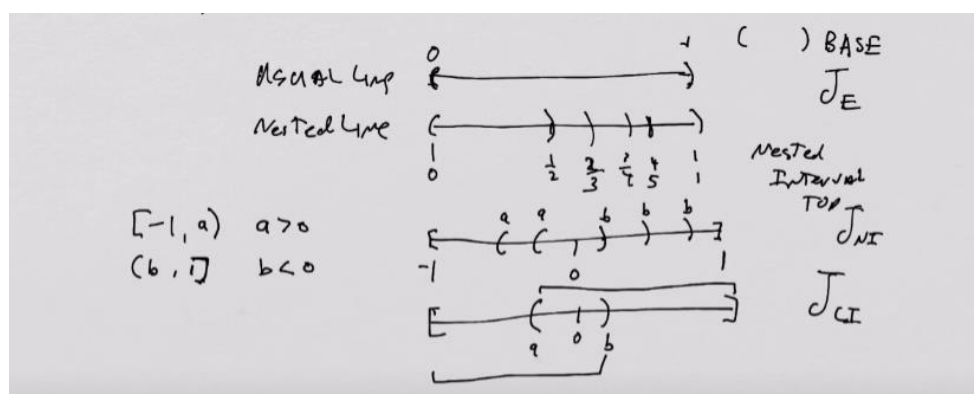 0 1 ( ) BASE
USUAL Line J_E
Nested Line
0 1/2 2/3 3/4 4/5 1
Nested
Interval
TOP
J_NI
[-1, a) a>0
a a b b b
(b, 1] b<0
-1 0 1
J_CI
a 0 b